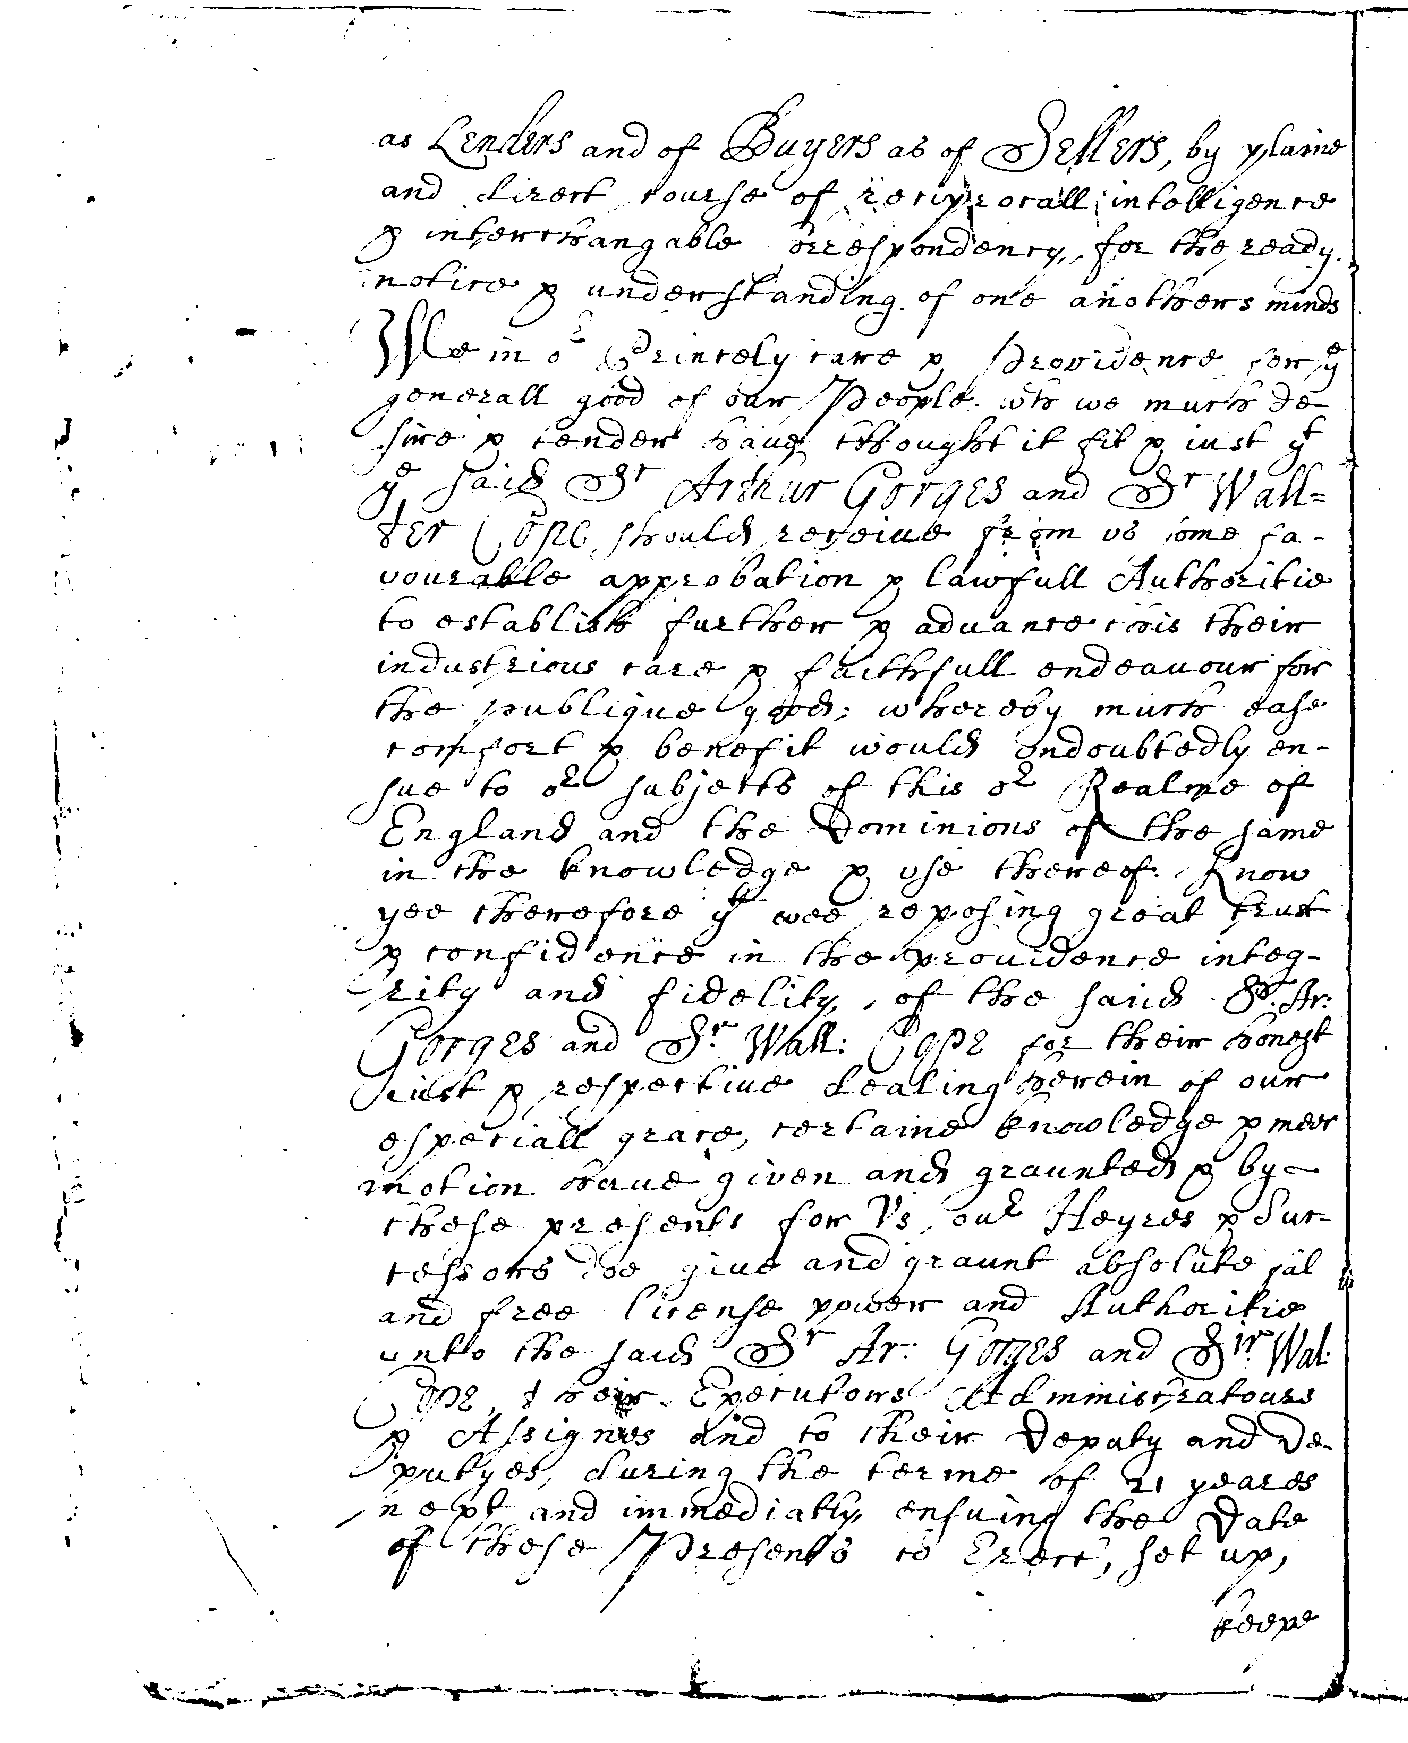 as Lenders and of Buyers as of Sellers, by plaine
and direct course of reciprocall intelligence
& interchangable correspondency, for the ready
notice & understanding of one anothers minds
Wee in or Princely care & Providence for ye
generall good of our People wch we much de
sire & tender have thought it fit & iust yt
ye said Sr Arthur Gorges and Sr Wall=
ter Cope should receive from us some fa-
vourable approbation & lawfull Authoritie
to establish further & advance this their
industrious care & faithfull endeavour for
the publique good; whereby much ease
comfort & benefit would undoubtedly en-
sue to or subjects of this or Realme of
England and the Dominions of the same
in the knowledge & use thereof. Know
yee therefore yt wee reposing great trust
& confidence in the providence integ-
rity and fidelity, of the said Sr. Ar:
Gorges and Sr. Wall: Cope for their honest
iust & respective dealing herein of our
especiall grace, certaine knowledge & meer
motion have given and graunted & by
these presents for Us, our Heyres & Suc-
cessors doe give and graunt absolute
and free license power and Authoritie
unto the said Sr Ar: Gorges and Sir. Wal:
Cope, their Executors Administratours
& Assignes and to their Deputy and De-
putyes, during the terme of 21 yeares
next and immediatly ensuing the Date
of these Presents to Erect, set up,
keepe